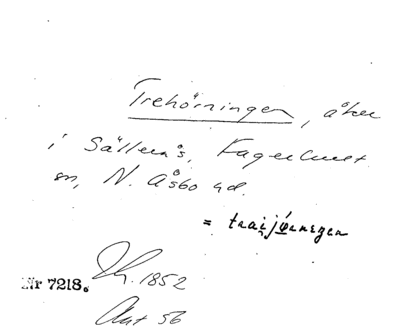 Trehörningen, åker
i Sällernås, Fagerhult
sn, N. Åsbo hd.
= traijönengen
Nr 7218.
1852
Akt 56